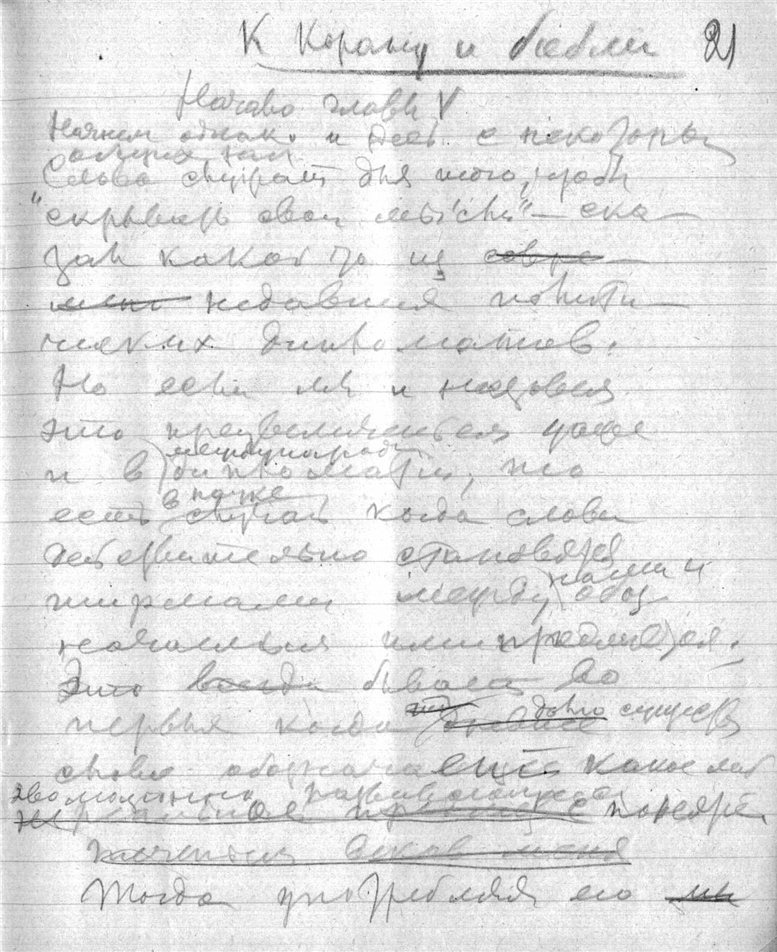 К Корану и библии 21
Начало главы V
Начнем однако и здесь с некоторы
Слова служат для того, чтобы
"скрывать свои мысли" — ска-
зал какой то из совре-
мен недавних полити-
ческих дипломатов.
Но если мы и назовем
это преувеличением даже
международн
и в дипломатии, то
в науке
есть случаи когда слова
действительно становятся
нами и
ширмами между обоз
начаемым ими предметом.
Это всегда бывает во
первых когда давно существ
слово обозначает еще какое либ
эволюционно развивающееся
Тогда употребляя его мы